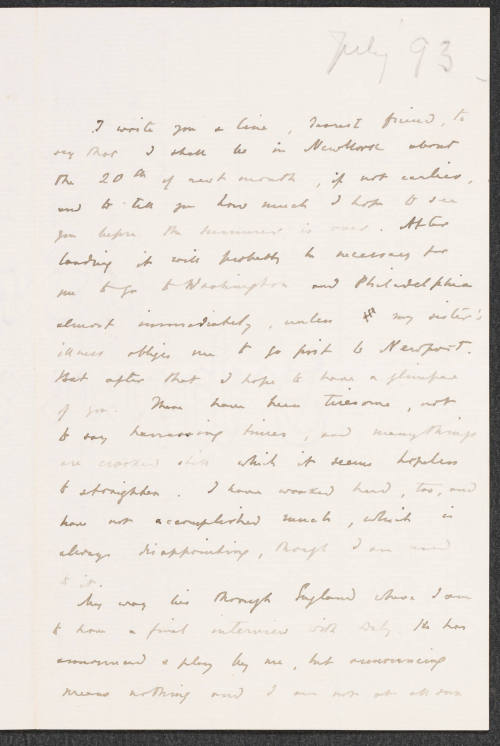 July 93
I write you a line, dearest friend, to
say that I shall be in New York about
the 20th of next month, if not earlier,
and to tell you how much I hope to see
you before the summer is over. After
landing it will probably be necessary for
me to go to Washington and Philadelphia
almost immediately, unless my sister's
illness obliges me to go first to Newport.
But after that I hope to have a glimpse
of you. These have been tiresome, not
to say harrassing times, and many things
are crooked still which it seems hopeless
to straighten. I have worked hard, too, and
have not accomplished much, which is
always disappointing, though I am used
to it.
My way lies through England where I am
to have a final interview with Daly. He has
announced a play by me, but announcing
means nothing and I am not at all sure